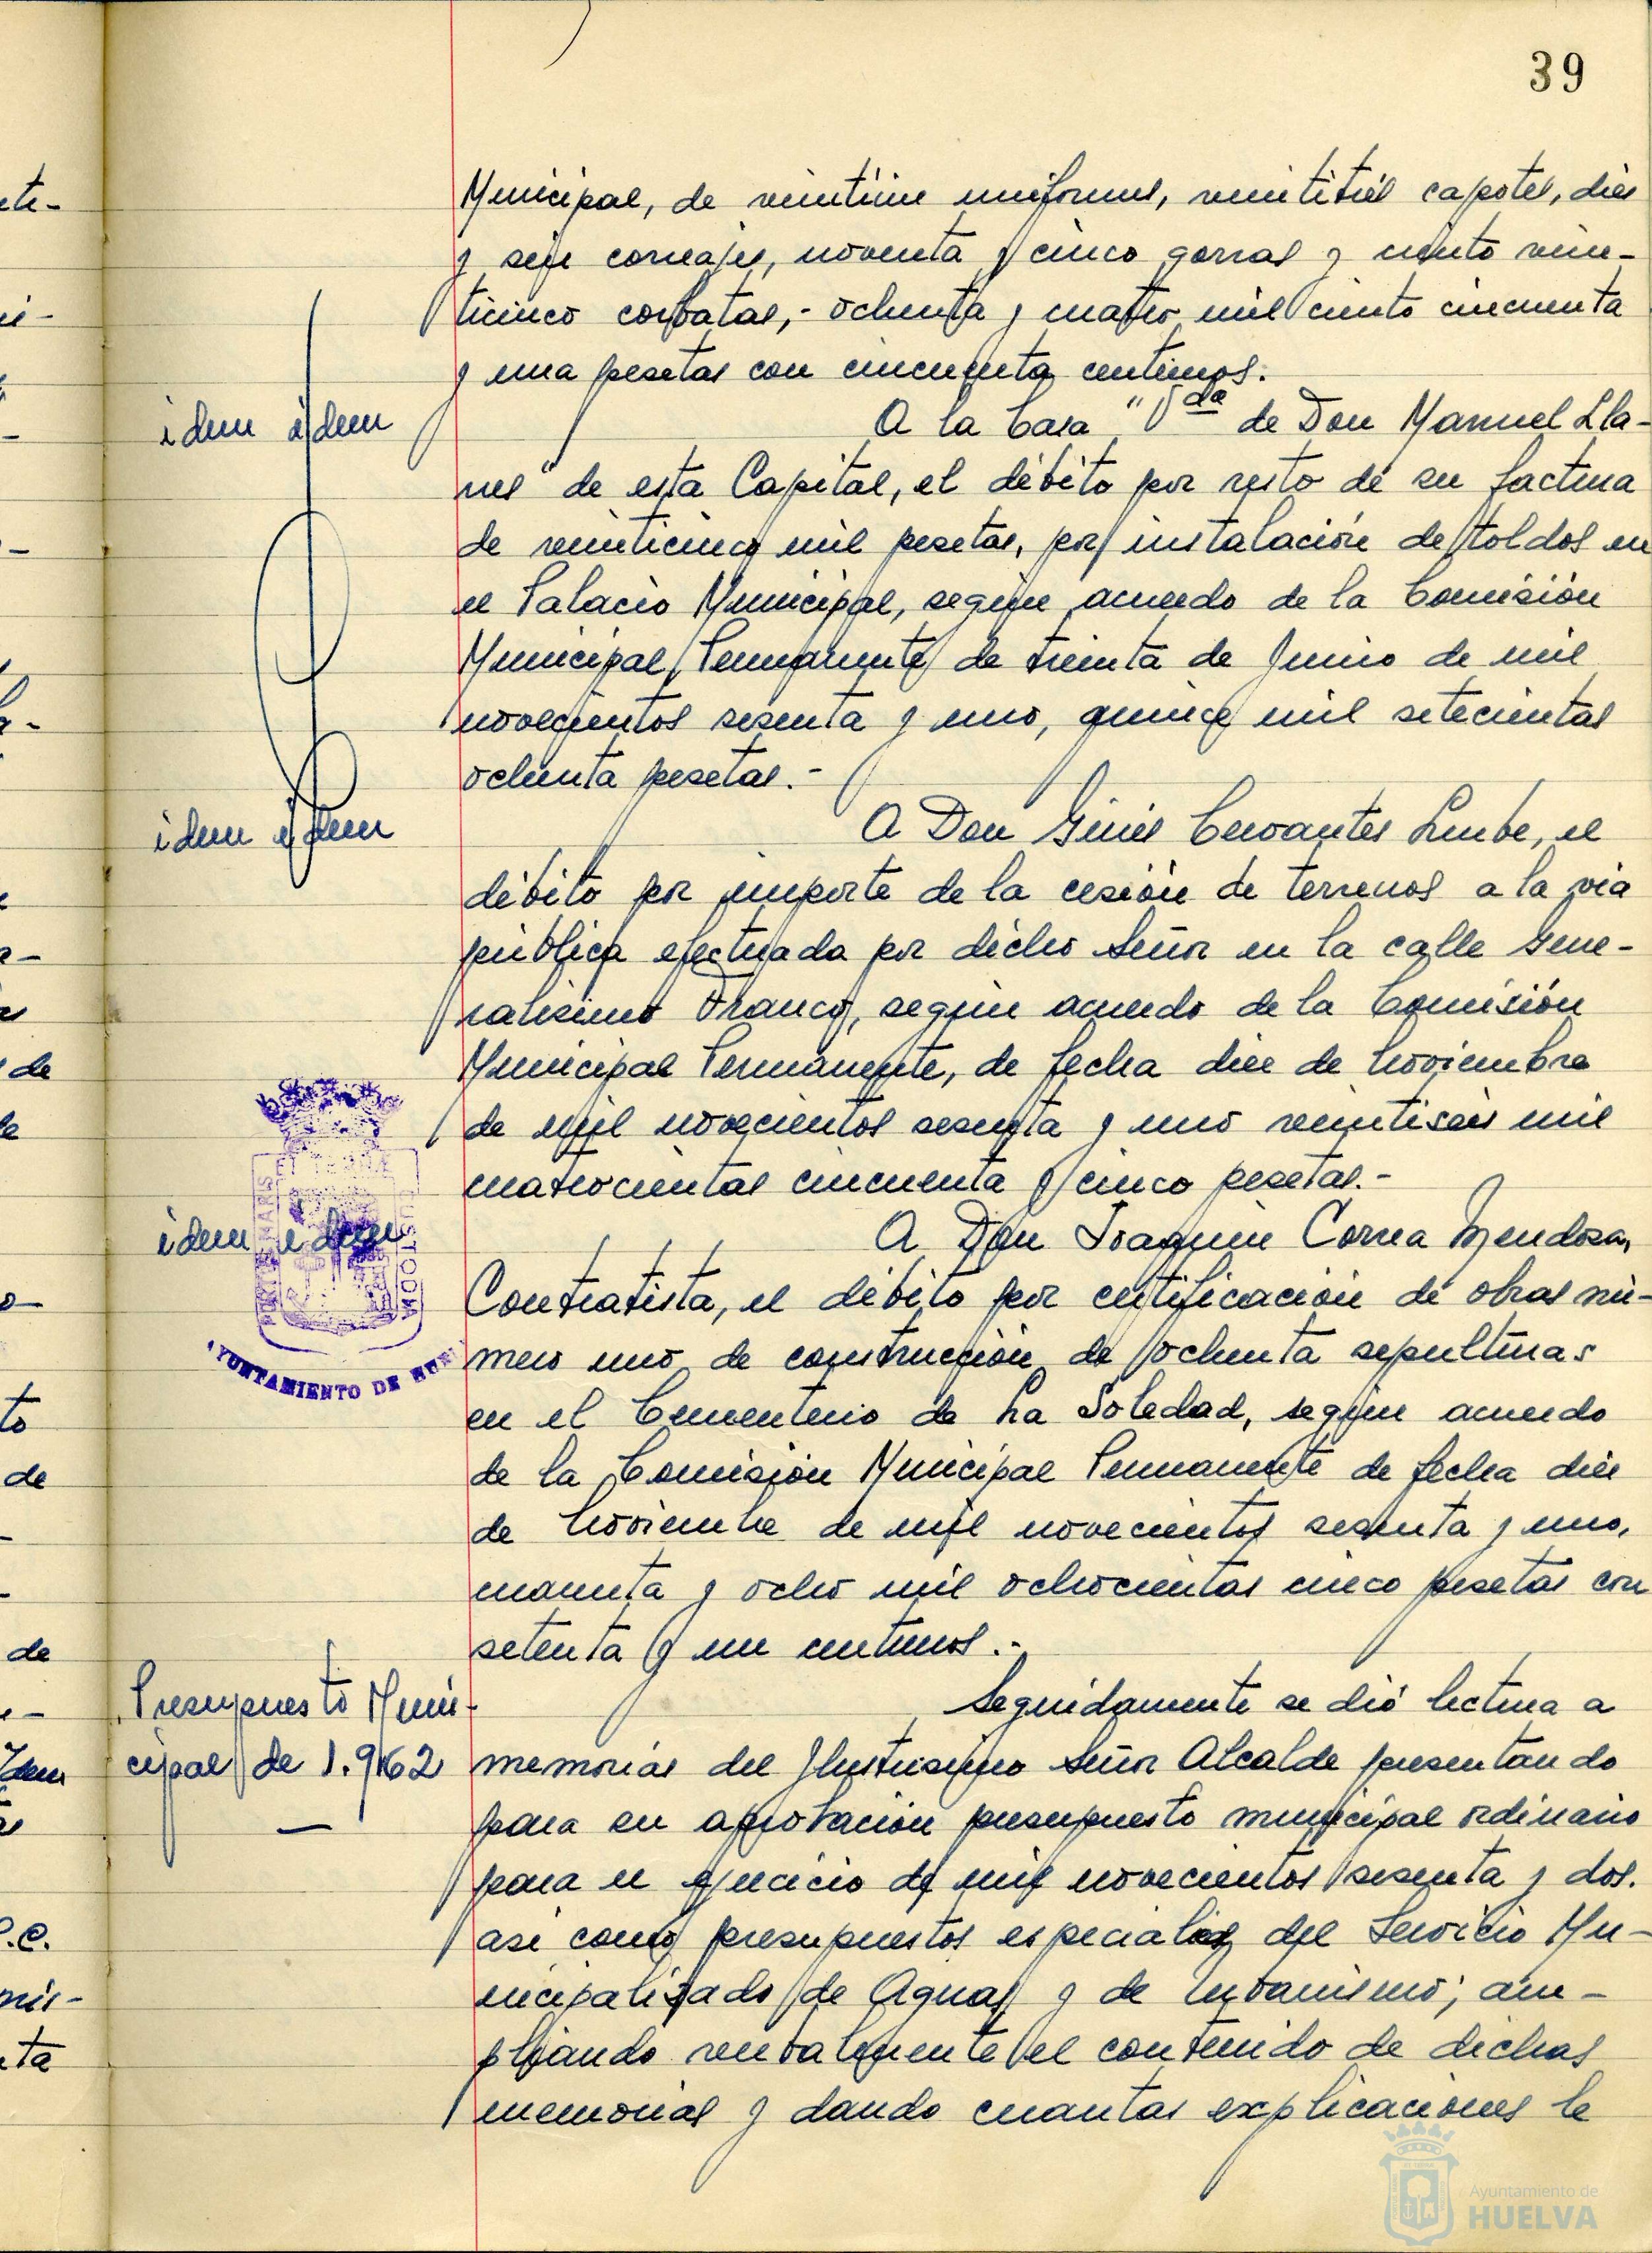 39
Municipal, de veintiún uniformes, veintitrés capotes, diez
y seis correajes, noventa y cinco gorras y ciento vein-
ticinco corbatas,- ochenta y cuatro mil ciento cincuenta
y una pesetas con cincuenta centimos.
idem idem
A la Casa "Vda de Don Manuel Lla-
nes" de esta Capital, el débito por resto de su factura
de veinticinco mil pesetas, por instalación de toldos en
el Palacio Municipal, según acuerdo de la Comisión
Municipal Permanente de treinta de Junio de mil
novecientos sesenta y uno, quince mil setecientas
ochenta pesetas.-
idem idem
A Don Ginés Cervantes, el
débito por importe de la cesión de terrenos a la via
pública efectuada por dicho Señor en la calle Gene-
ralisimo Franco, según acuerdo de la Comisión
Municipal Permanente, de fecha diez de Noviembre
de mil novecientos sesenta y uno veintiseis mil
cuatrocientas cincuenta y cinco pesetas.-
idem idem
A Don Joaquin Correa Mendoza,
Contratista, el débito por certificación de obras nú-
mero uno de construcción de ochenta sepulturas
en el Cementerio de La Soledad, según acuerdo
de la Comisión Municipal Permanente de fecha diez
de Noviembre de mil novecientos sesenta y uno,
cuarenta y ocho mil ochocientas cinco pesetas con
setenta y un centimos.-
Presupuesto Muni-
cipal de 1.962
Seguidamente se dió lectura a
memorias del Ilustrisimo Señor Alcalde presentando
para su aprobación presupuesto municipal ordinario
para el ejercicio de mil novecientos sesenta y dos.
asi como presupuestos especiales del Servicio Mu-
nicipalizado de Aguas y de Urbanismo; am-
pliando verbalmente el contenido de dichas
memorias y dando cuantas explicaciones le
PORTUS MARIS ET TERRÆ CUSTODIA
AYUNTAMIENTO DE HUEL
Ayuntamiento de
HUELVA